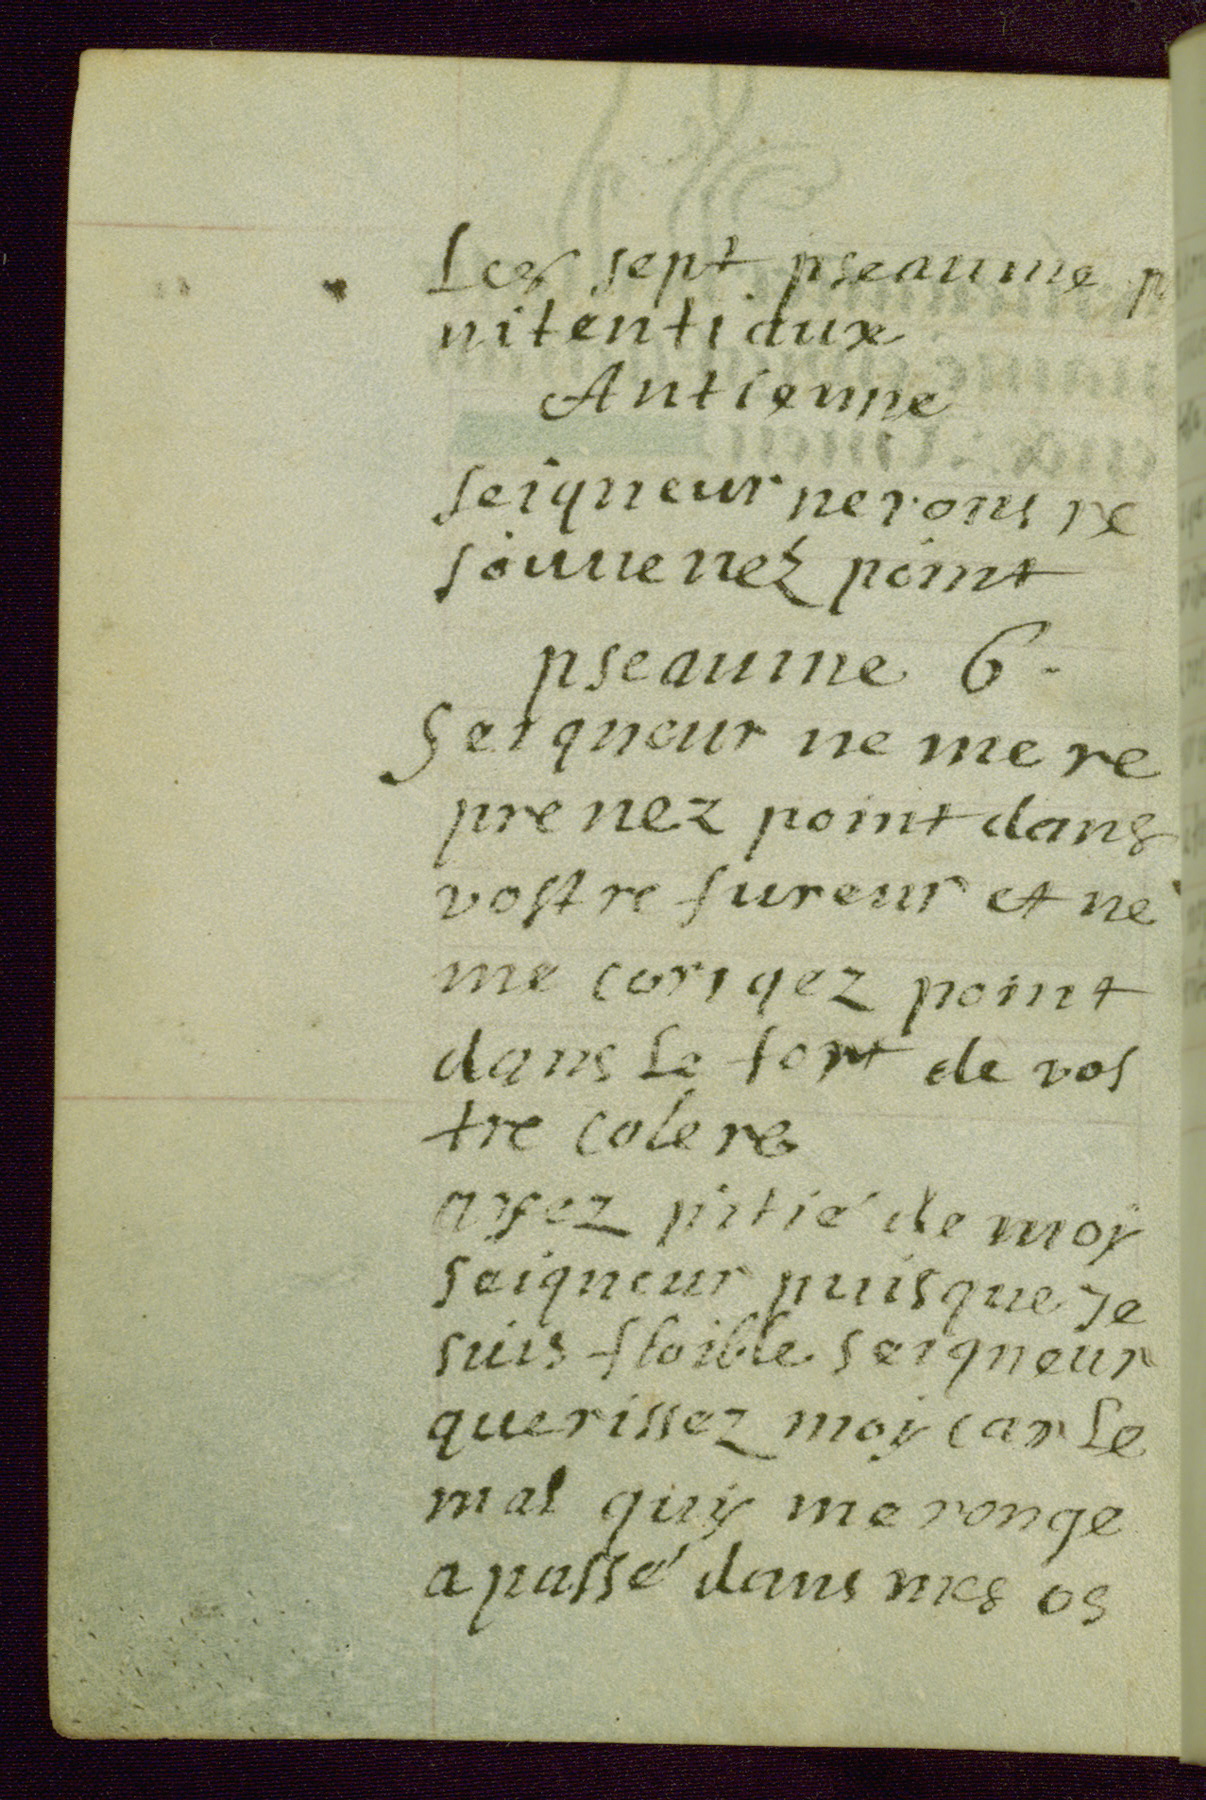 Les sept pseaume p
nitentiaux
Antienne
seigneur ne vous re
souuenez point
pseaume 6.
Seigneur ne me re
prenez point dans
vostre fureur et ne
me corigez point
dans Le fort de vos
tre colere
ayez pitié de moy
seigneur puisque Je
suis floible seigneur
querissez moy car Le
mal quy me ronge
a passé dans mes os